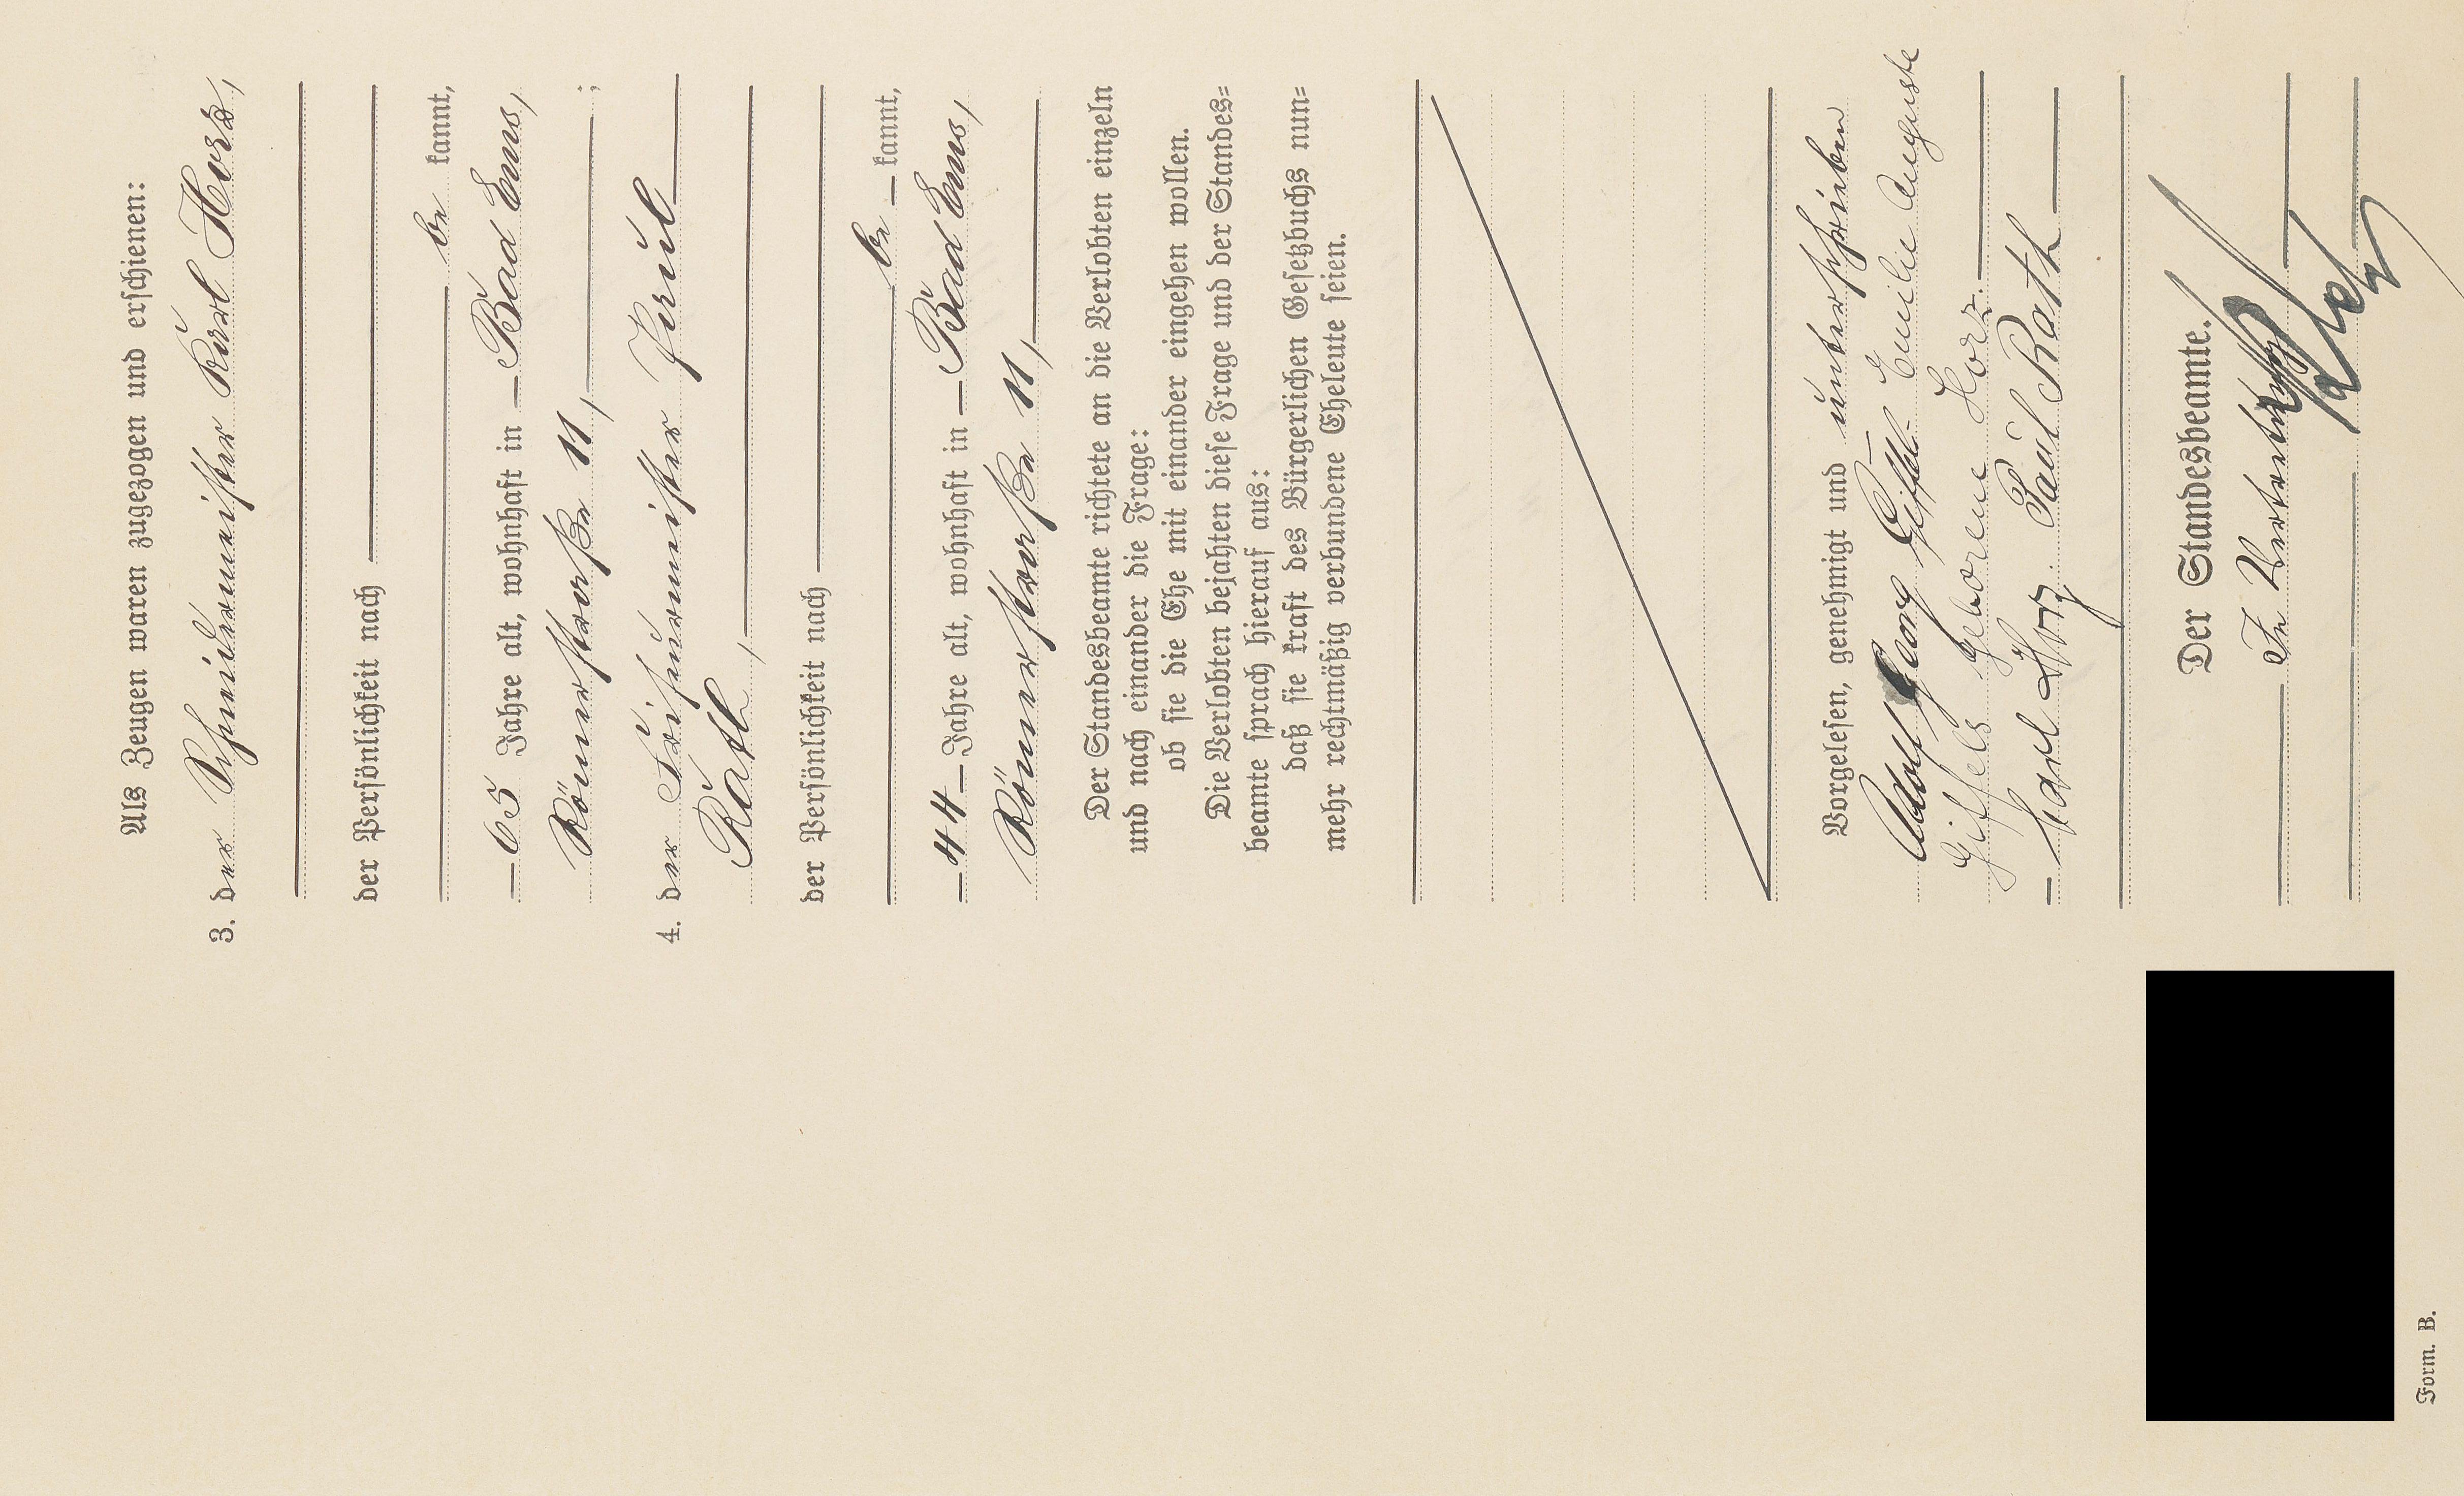 Als Zeugen waren zugezogen und erschienen:
3. der Schneidermeister Karl Horz,
der Persönlichkeit nach
be kannt,
65 Jahre alt, wohnhaft in Bad Ems,
Römerstraße 11, ;
4. der Friseurmeister Paul
Rath,
der Persönlichkeit nach
be kannt,
44 Jahre alt, wohnhaft in Bad Ems,
Römerstraße 11,
Der Standesbeamte richtete an die Verlobten einzeln
und nach einander die Frage:
ob sie die Ehe mit einander eingehen wollen.
Die Verlobten bejahten diese Frage und der Standes=
beamte sprach hierauf aus:
daß sie kraft des Bürgerlichen Gesetzbuchs nun=
mehr rechtmäßig verbundene Eheleute seien.
Vorgelesen, genehmigt und unterschrieben
Adolf Georg Giffels Emilie Auguste
Giffels geborene Horz.
Karl Horz. Paul Rath
Der Standesbeamte.
In Vertretung
Form. B.